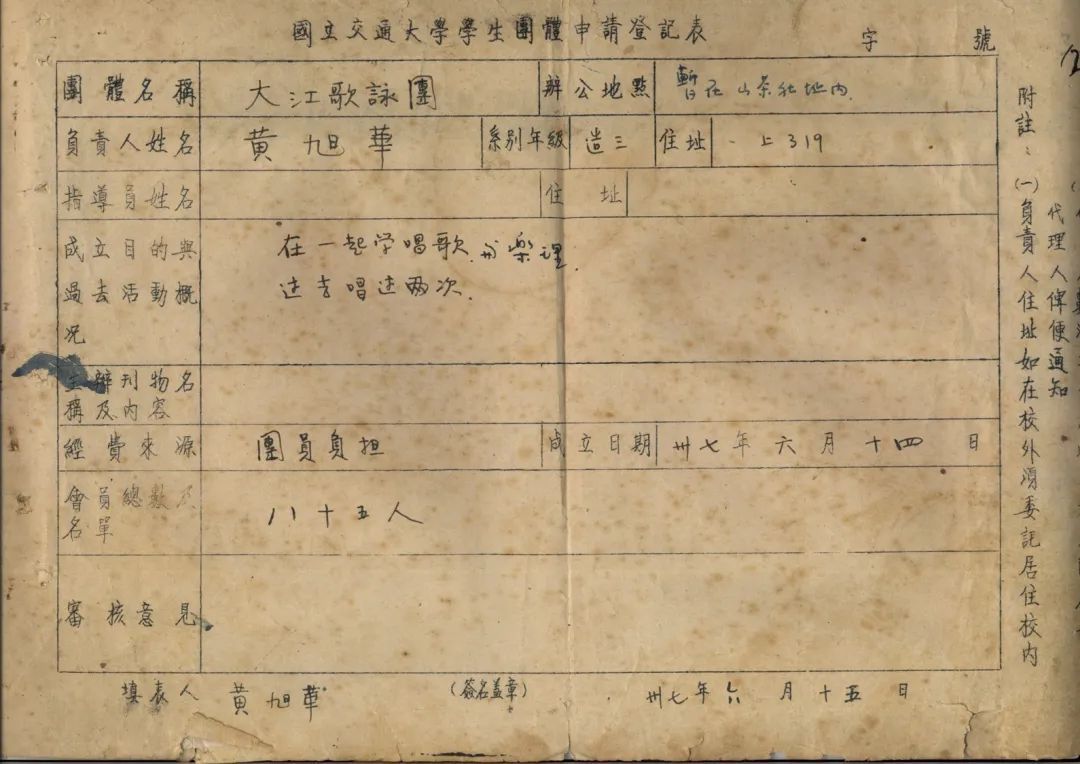 國立交通大學學生團體申請登記表
字 號
團體名稱 大江歌詠團 辦公地點 暫在山茶社址内
負責人姓名 黄旭華 系别年級 造三 住址 上319
指導員姓名 住址
成立目的與過去活動概況
在一起学唱歌 樂理
过去唱过两次
主辦刊物名稱及内容
經費來源 團員負担 成立日期 卅七年六月十四日
會員總數及名單 八十五人
審核意見
填表人 黄旭華 (簽名盖章) 卅七年六月十五日
附註:
(一)負責人住址如在校外須委託居住校内
代理人俾便通知